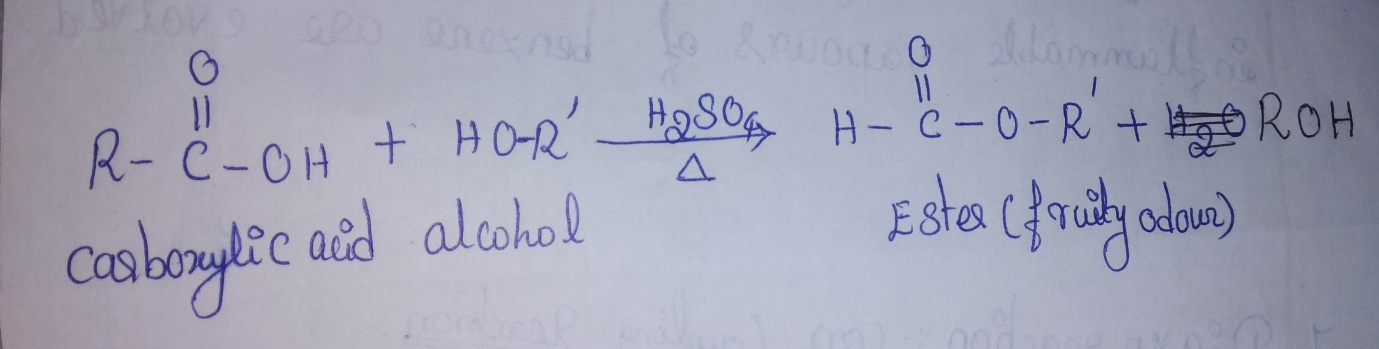 O O
|| ||
R - C - OH + HO-R' H2SO4 H - C - O - R' + H2O ROH
Δ
Carboxylic acid alcohol Ester (fruity odour)